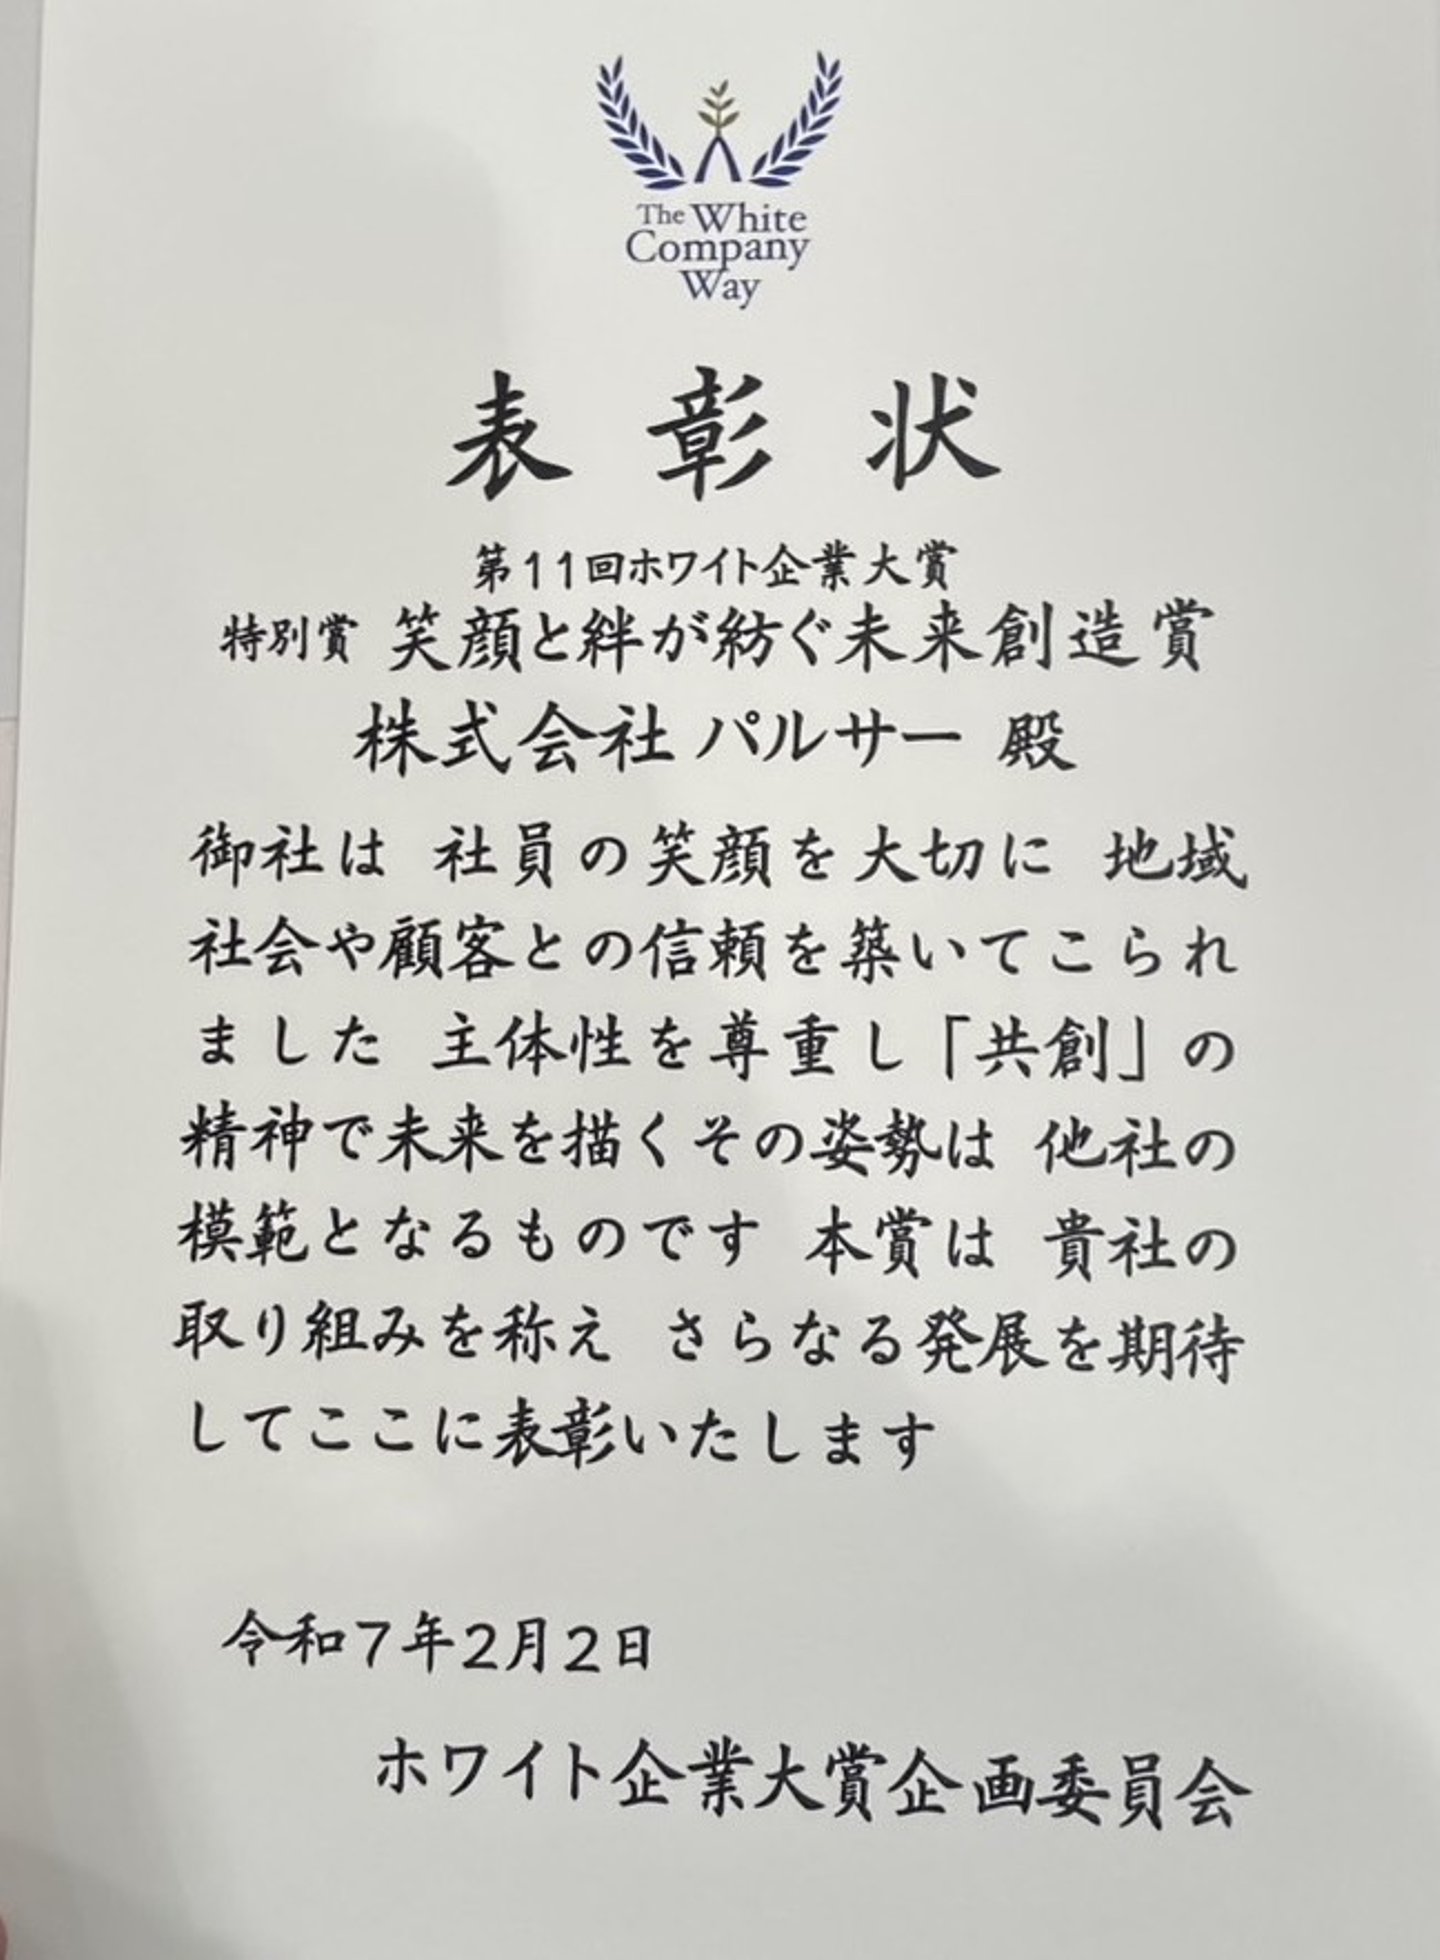 The White
Company
Way
表彰状
第11回ホワイト企業大賞
特別賞 笑顔と絆が紡ぐ未来創造賞
株式会社 パルサー 殿
御社は 社員の笑顔を大切に 地域
社会や顧客との信頼を築いてこられ
ました 主体性を尊重し「共創」の
精神で未来を描くその姿勢は 他社の
模範となるものです 本賞は 貴社の
取り組みを称え さらなる発展を期待
してここに表彰いたします
令和7年2月2日
ホワイト企業大賞企画委員会